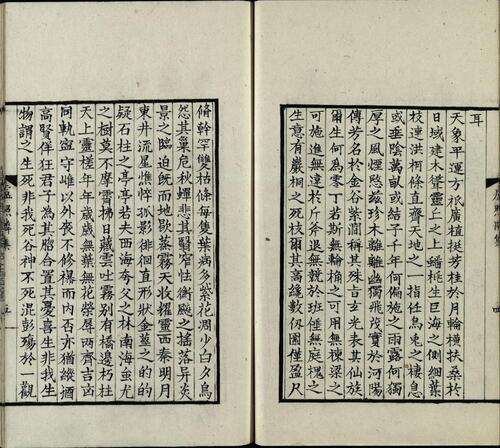 耳
天象平運方祇廣植挺芳桂於月輪橫扶桑於
日域建木聳靈丘之上蟠桃生巨海之側細葉
枝連洪柯條直齊天地之一指任烏兔之棲息
或垂陰萬畝或結子千年何偏施之雨露何獨
厚之風煙愍茲珍木離離幽獨飛茂實於河陽
傳芳名於金谷紫澗稱其殊旨玄光表其仙族
爾生何為零丁若斯無輪桷之可用無棟梁之
可施進無違於斤斧退無競於班倕無庭槐之
生意有巖桐之死枝爾其高纔數仞圍僅盈尺
脩幹罕雙枯條每隻葉病多紫花凋少白夕鳥
怨其巢危秋蟬悲其翳窄怯衡飈之搖落炎
景之臨迫既而地歇蒸霧天收耀靈西秦明月
東井流星憔悴孤影徘徊直形狀金莖之的的
疑石柱之亭亭若夫西海夸父之林南海蚩尤
之樹莫不摩霄拂日雲吐霧別有橋邊朽柱
天上靈槎年年歲歲無葉無花榮辱兩齊吉凶
同軌寧守雌以外喪不修襮而內否亦猶縱酒
高賢佯狂君子為其吻合置其憂喜生非我生
物謂之生死非我死谷神不死混彭殤於一觀